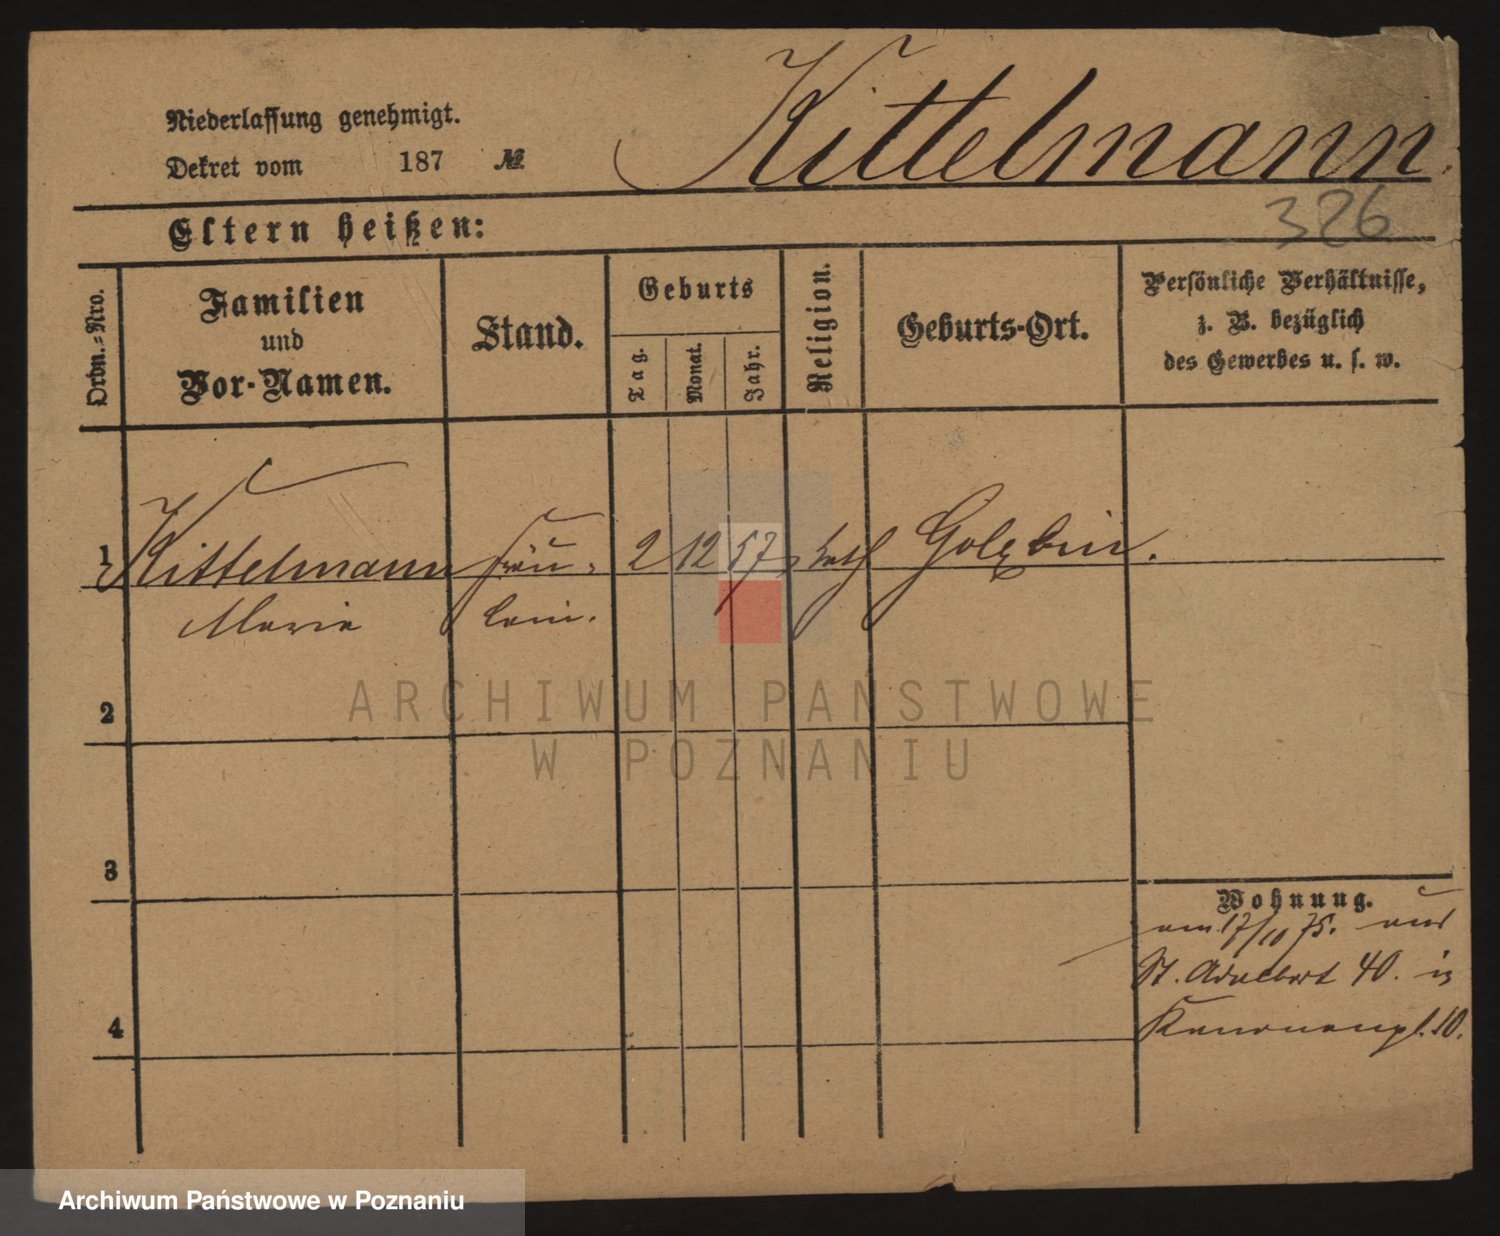 Niederlassung genehmigt.
Dekret vom 187 №
Kittelmann.
326
Eltern heißen:
Ordn.-Nro.
Familien
und
Vor-Namen.
Stand.
Geburts
Tag.
Monat.
Jahr.
Religion.
Geburts-Ort.
Persönliche Verhältnisse,
z. B. bezüglich
des Gewerbes u. s. w.
1 Kittelmann Fräu- 2 12 57 kath
Marie lein.
2
3
4
Wohnung.
am 17/10 75. aus
St. Adalbert 40. in
Kanonenpl. 10.
ARCHIWUM PAŃSTWOWE
W POZNANIU
Archiwum Państwowe w Poznaniu